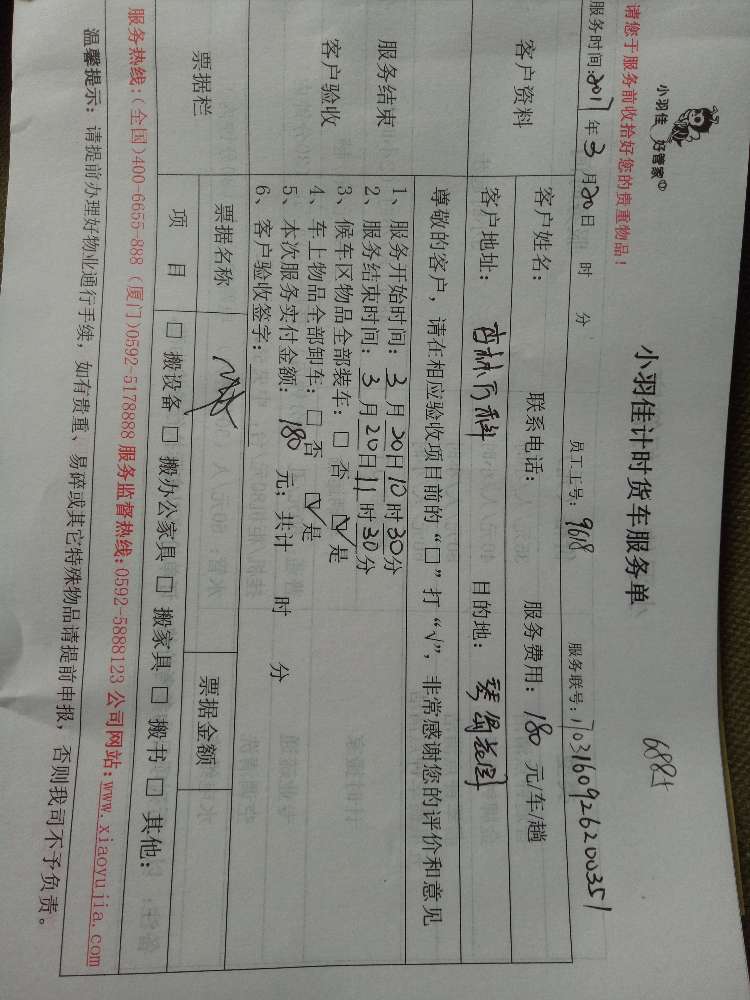 小羽佳 好管家
请您于服务前收拾好您的贵重物品！
6884
小羽佳计时货车服务单
服务时间:2017年3月20日 时 分 员工工号: 9618 服务联号:
客户资料
客户姓名： 联系电话： 服务费用：180 元/车/趟
客户地址： 杏林万科 目的地：
尊敬的客户，请在相应验收项目前的“□”打“√”，非常感谢您的评价和意见
服务结束
客户验收
1、服务开始时间：3月20日10时30分
2、服务结束时间：3月20日11时30分
3、候车区物品全部装车：□ 否 ☑ 是
4、车上物品全部卸车：□ 否 ☑ 是
5、本次服务实付金额： 180 元；共计 时 分
6、客户验收签字：
票据栏
票据名称 票据金额
项 目 □ 搬设备 □ 搬办公家具 □ 搬家具 □ 搬书 □ 其他：
服务热线:(全国)400-6655-888 (厦门)0592-5178888 服务监督热线:0592-5888123 公司网站:www.xiaoyujia.com
温馨提示：请提前办理好物业通行手续，如有贵重、易碎或其它特殊物品请提前申报，否则我司不予负责。